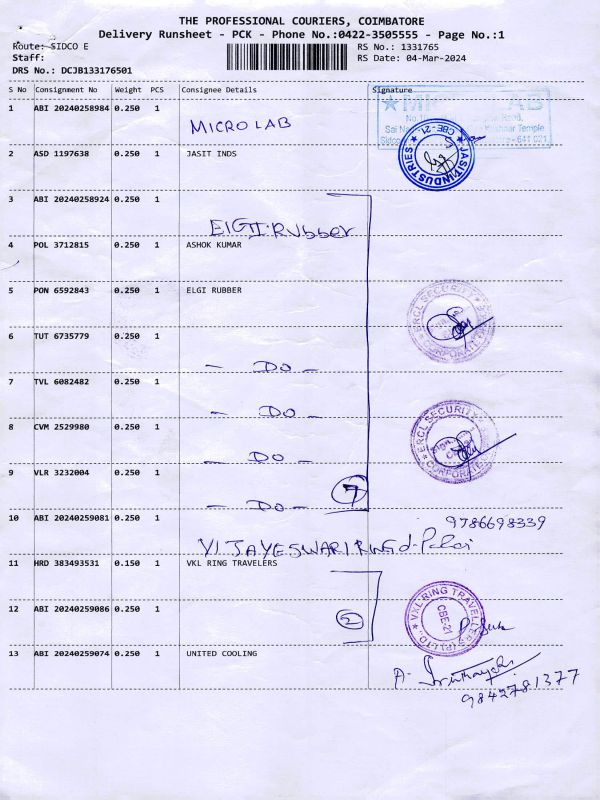 THE PROFESSIONAL COURIERS, COIMBATORE
Delivery Runsheet - PCK - Phone No.:0422-3505555 - Page No.:1
Route: SIDCO E
RS No.: 1331765
Staff:
RS Date: 04-Mar-2024
DRS No.: DCJB133176501
S No Consignment No Weight PCS Consignee Details Signature
1 ABI 20240258984 0.250 1
MICRO LAB
CBE-21
JASIT INDUSTRIES
2 ASD 1197638 0.250 1 JASIT INDS
3 ABI 20240258924 0.250 1
ElGI Rubber
4 POL 3712815 0.250 1 ASHOK KUMAR
5 PON 6592843 0.250 1 ELGI RUBBER
ERCL SECURITY
CORPORATE
6 TUT 6735779 0.250 1
- DO -
7 TVL 6082482 0.250 1
- DO -
8 CVM 2529980 0.250 1
- DO -
ERCL SECURITY
CORPORATE
9 VLR 3232004 0.250 1
- DO -
7
10 ABI 20240259081 0.250 1
9786698339
VIJAYESWARI RING
11 HRD 383493531 0.150 1 VKL RING TRAVELERS
12 ABI 20240259086 0.250 1
2
VXL RING TRAVELLERS (P) LTD.
CBE-21
13 ABI 20240259074 0.250 1 UNITED COOLING
9842781377